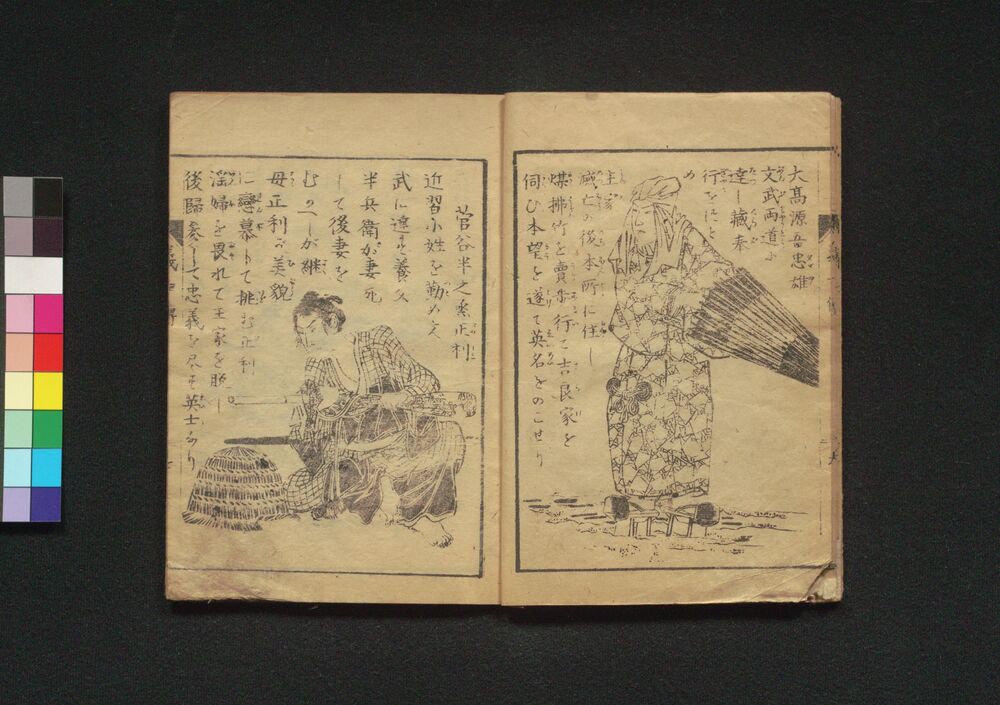 大髙源吾忠雄
文武両道に
達し藏奉
行をにと
め
主家
滅亡の後本所に住し
煤掃竹を賣歩行て吉良家を
伺ひ本望を遂て英名をのこせり
菅谷半之丞正利
近習小姓を勤め文
武に達す養父
半兵衛が妻死
して後妻を
むかへしが継
母正利が美貌
に戀慕して挑む正利
淫婦を畏れて主家を脱し
後歸参して忠義を尽す英士なり